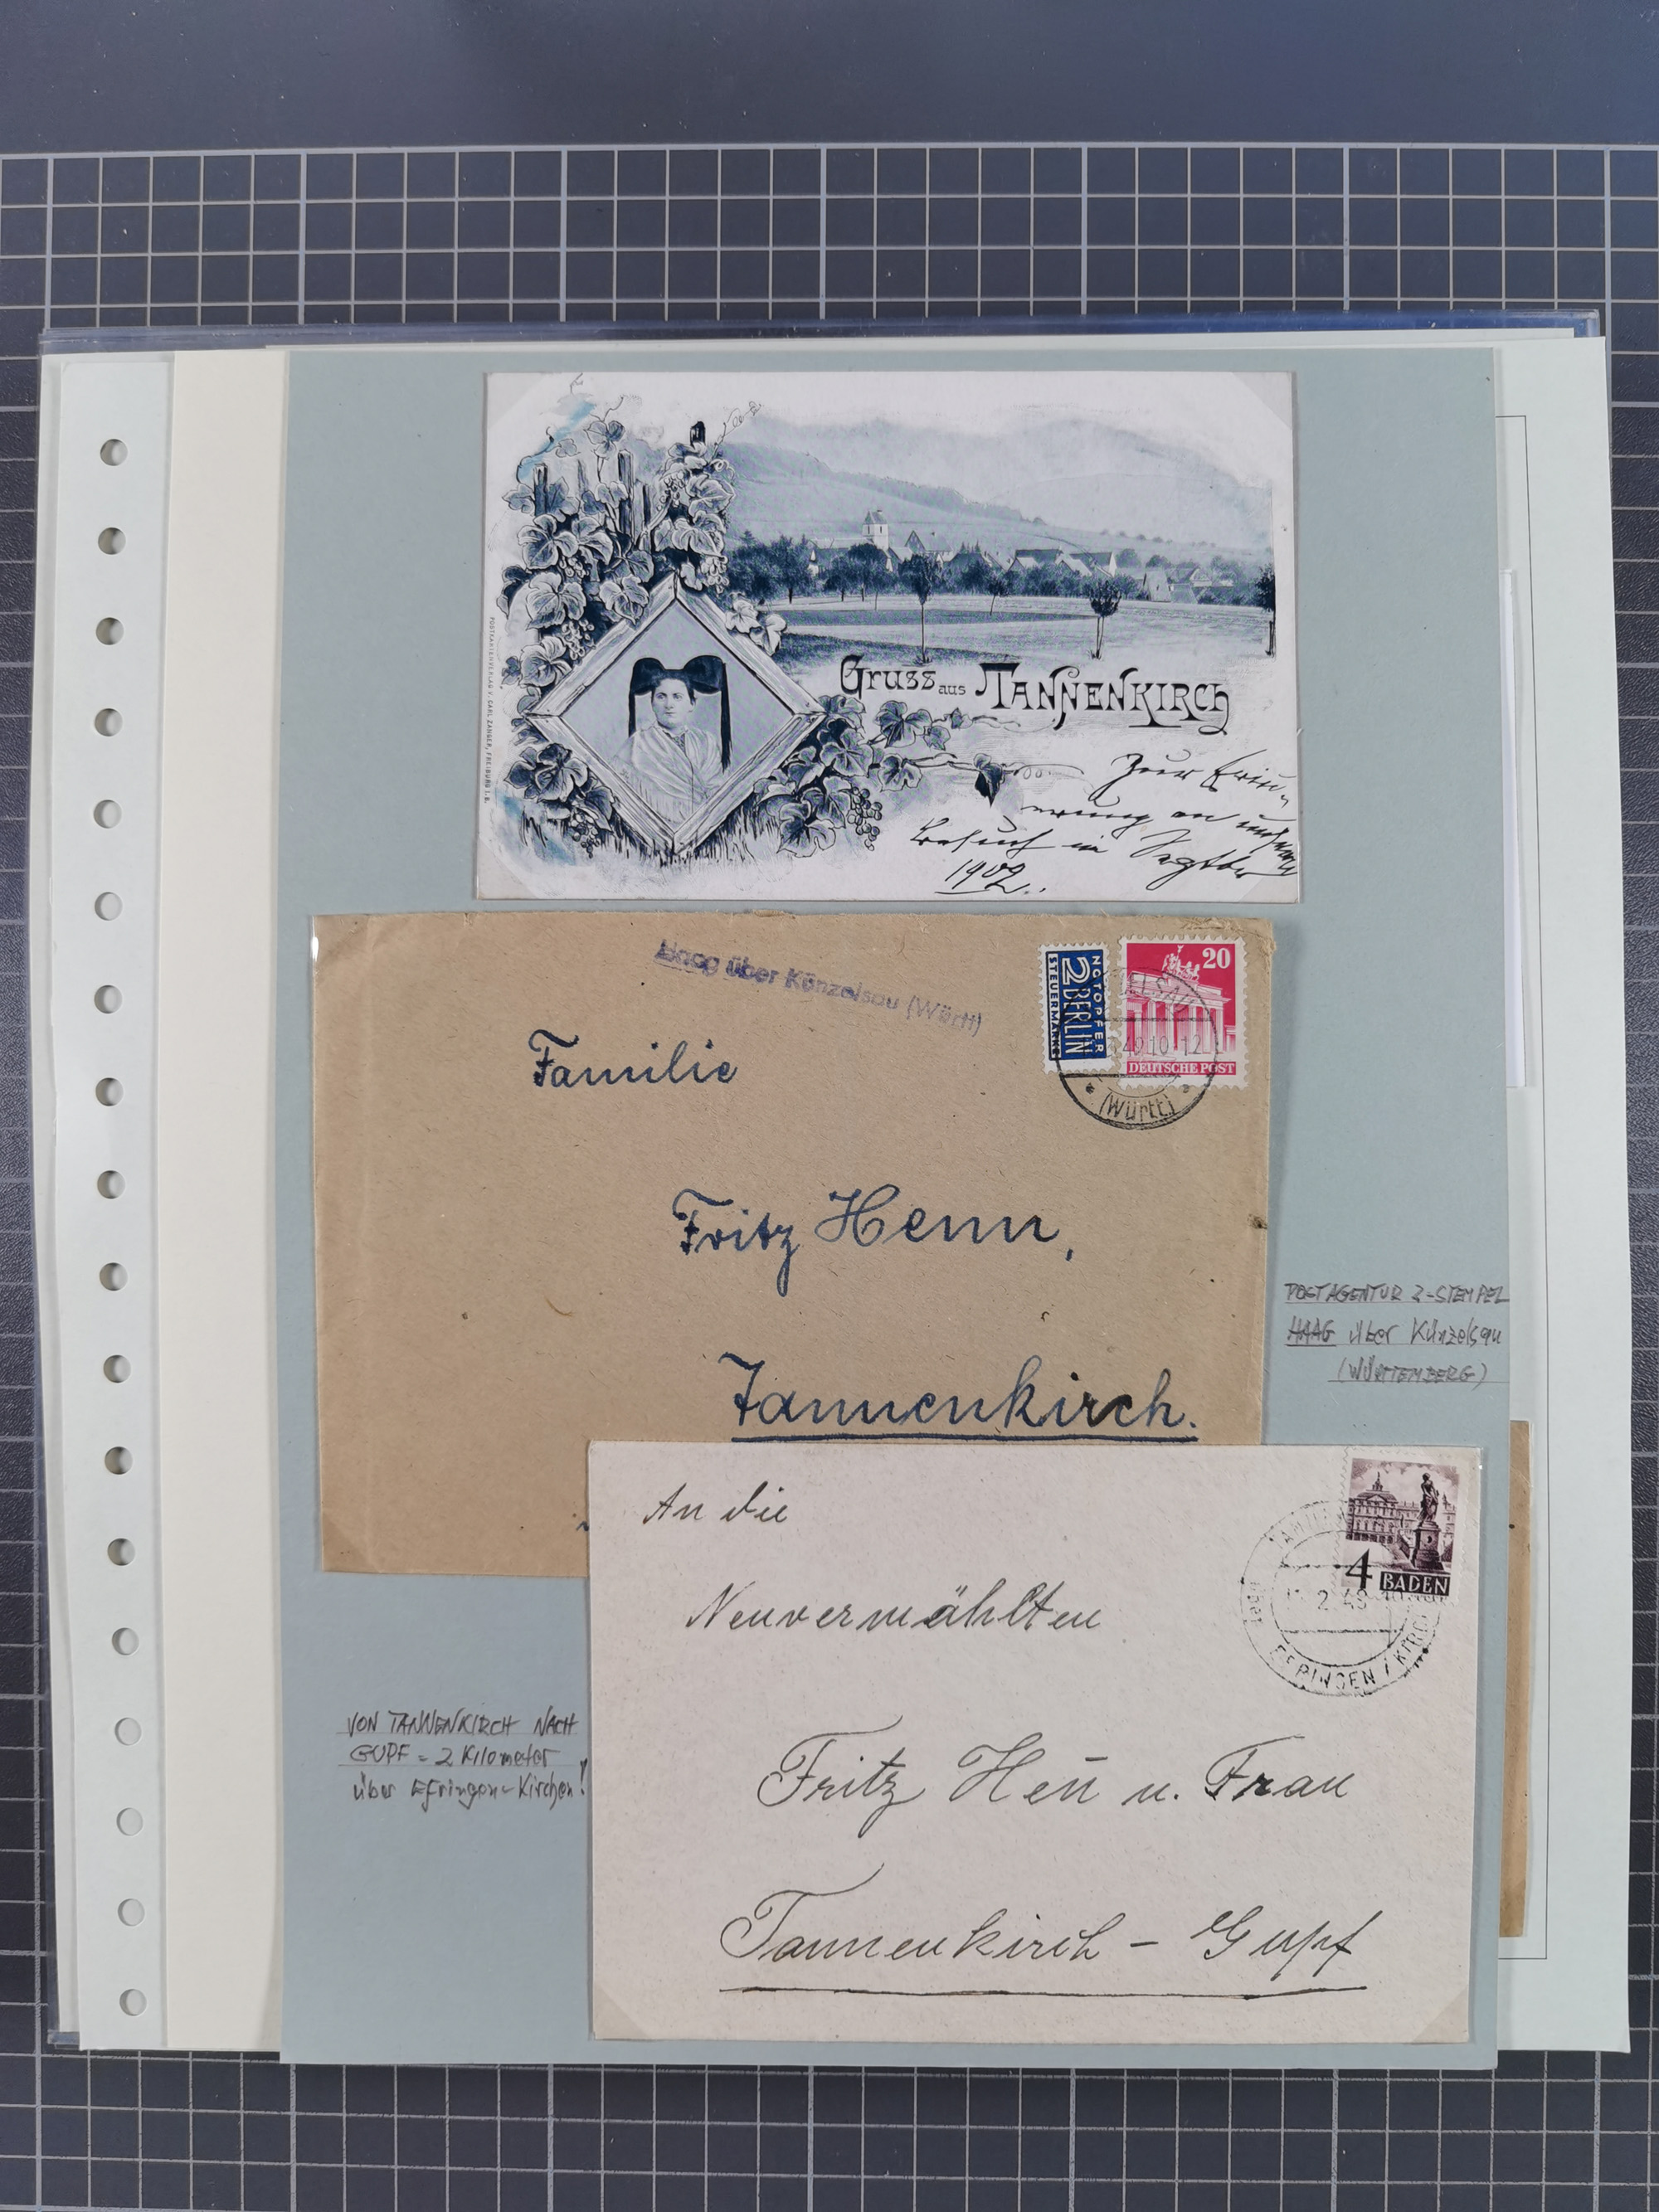 POSTKARTENVERLAG V. CARL ZÄNGER, FREIBURG I. B.
Gruss aus TANNENKIRCH
Zur Erin-
nerung an unsern
Besuch im
1902.
Haag über Künzelsau (Württ)
NOTOPFER
2 BERLIN
STEUERMARKE
20
DEUTSCHE POST
49.10-12
(Württ)
Familie
Fritz Henn,
Tannenkirch.
POSTAGENTUR 2-STEMPEL
HAAG über Künzelsau
(WÜRTTEMBERG)
An die
Neuvermählten
4 BADEN
2.49
über EFRINGEN / KIRCH
Fritz Hen̄ u. Frau
Tannenkirch - Gupf
VON TANNENKIRCH NACH
GUPF = 2 Kilometer
über Efringen-Kirchen!